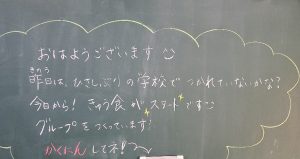 おはようございます
きのう
昨日は、ひさしぶりの学校で つかれていないかな?
今日から! きゅう食が スタートです
グループをつくっています!
かくにんしてネ!